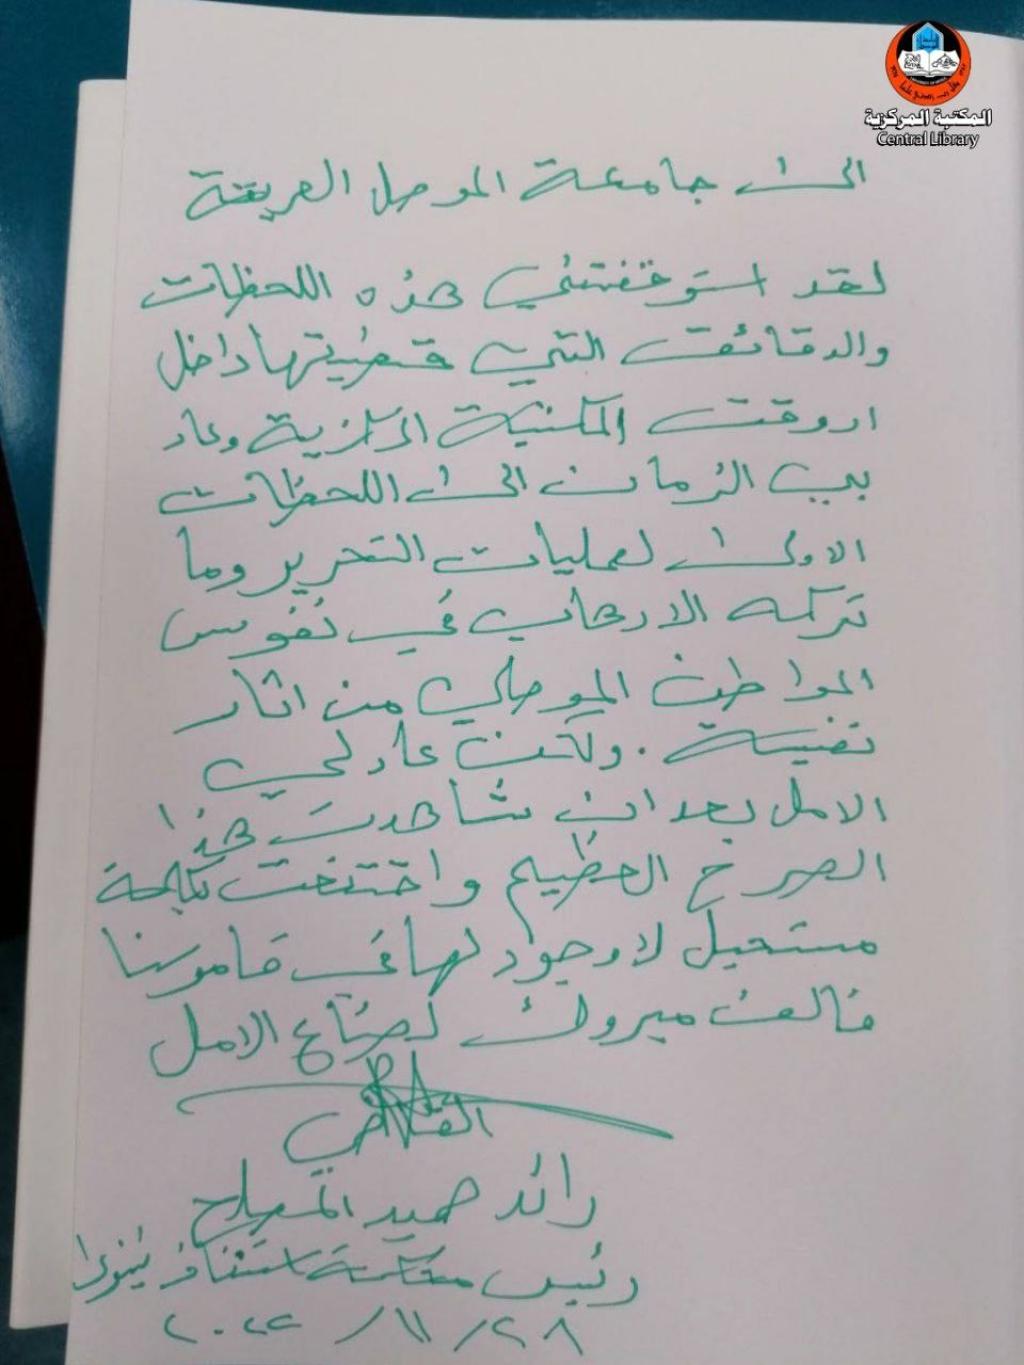 المكتبة المركزية
Central Library
الى جامعة الموصل العريقة
لقد استوقفتني هذه اللحظات
والدقائق التي قضيتها داخل
اروقت المكتبة المركزية وعاد
بي الزمان الى اللحظات
الاولى لعمليات التحرير وما
تركه الارهاب في نفوس
المواطن الموصلي من اثار
نفسية . ولكن عاد لي
الامل بعد ان شاهدت هذا
الصرح العظيم واختفت كلمة
مستحيل لا وجود لها في قاموسنا
فالف مبروك لصناع الامل
القاضي
رائد حميد المصلح
رئيس محكمة استئناف نينوى
٢٨/١١/٢٠٢٢